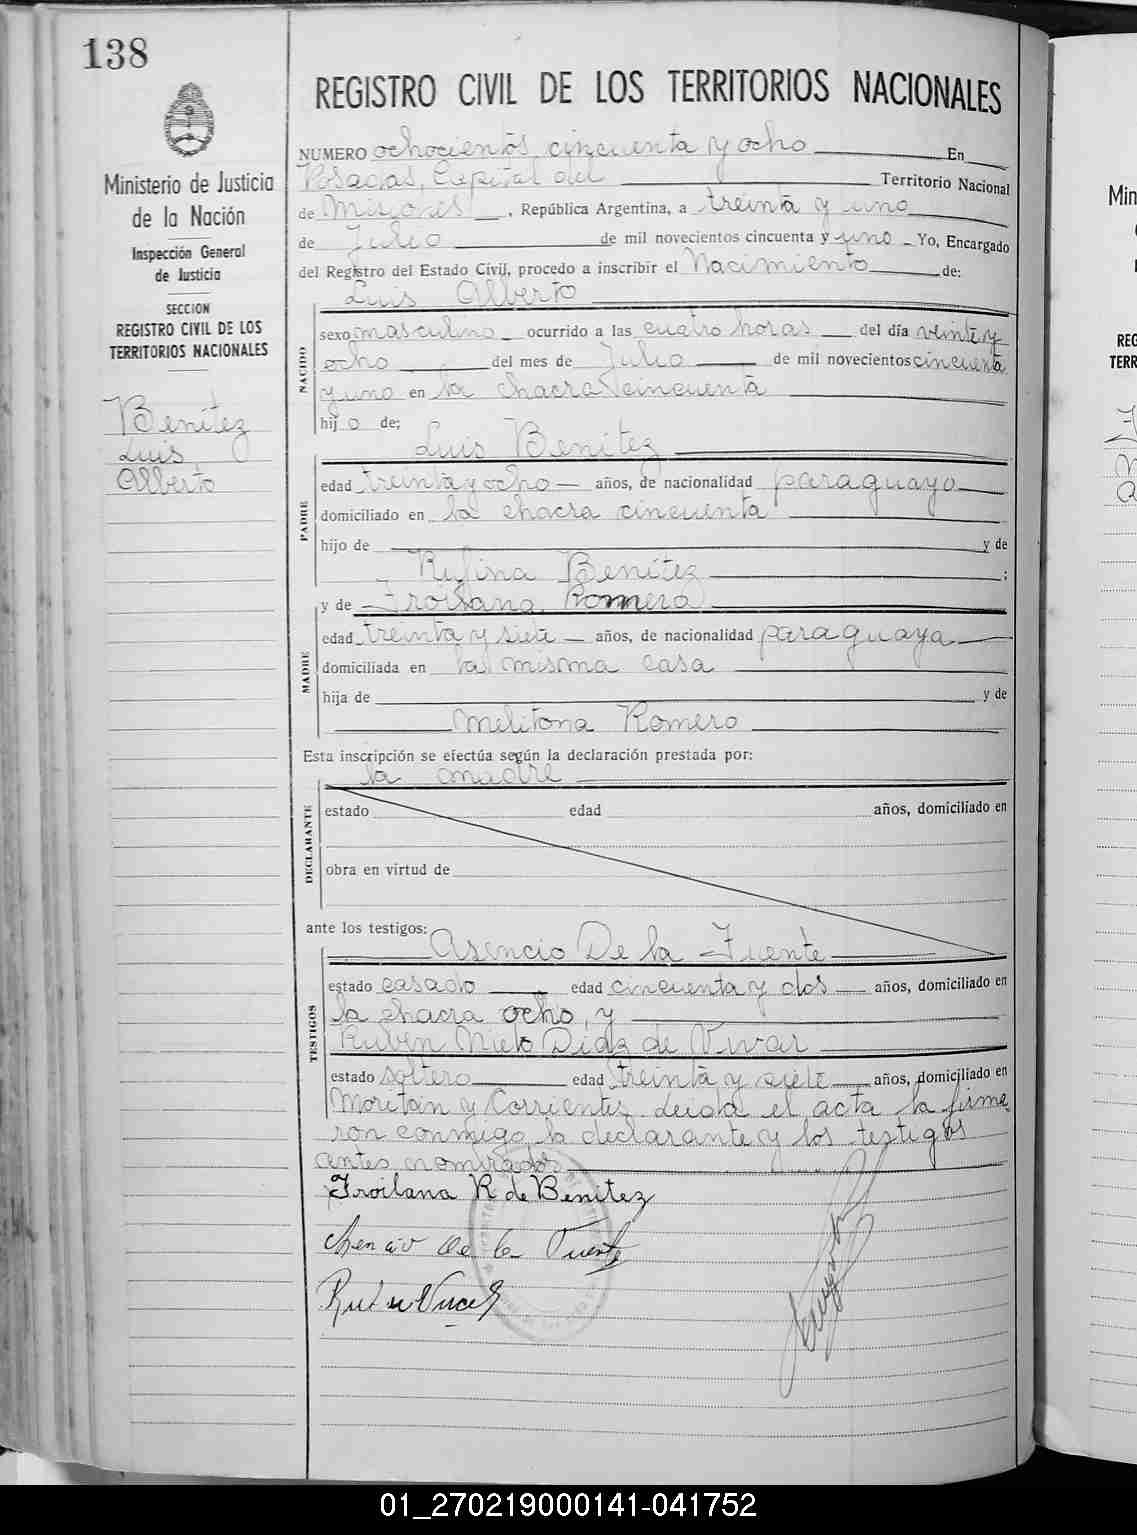 138
Ministerio de Justicia
de la Nación
Inspección General
de Justicia
SECCION
REGISTRO CIVIL DE LOS
TERRITORIOS NACIONALES
Benítez
Luis
Alberto
REGISTRO CIVIL DE LOS TERRITORIOS NACIONALES
NUMERO ochocientos cincuenta y ocho En
Posadas, Capital del Territorio Nacional
de Misiones, República Argentina, a treinta y uno
de Julio de mil novecientos cincuenta y uno Yo, Encargado
del Registro del Estado Civil, procedo a inscribir el Nacimiento de:
Luis Alberto
NACIDO
sexo masculino ocurrido a las cuatro horas del día veinte y
ocho del mes de Julio de mil novecientos cincuenta
y uno en la chacra cincuenta
hijo de:
Luis Benítez
PADRE
edad treinta y ocho años, de nacionalidad paraguayo
domiciliado en la chacra cincuenta
hijo de y de
Rufina Benítez :
y de Troilana Romero
MADRE
edad treinta y siete años, de nacionalidad paraguaya
domiciliada en la misma casa
hija de y de
Melitona Romero
Esta inscripción se efectúa según la declaración prestada por:
la madre
DECLARANTE
estado edad años, domiciliado en
obra en virtud de
ante los testigos:
Asencio De la Fuente
TESTIGOS
estado casado edad cincuenta y dos años, domiciliado en
la chacra ocho, y
Ruben Nieto Diaz de Vivar
estado soltero edad treinta y siete años, domiciliado en
Moritan y Corrientes. Leida el acta la firma
ron conmigo la declarante y los testigos
antes nombrados
Troilana R de Benitez
Asencio de la Fuente
01_270219000141-041752